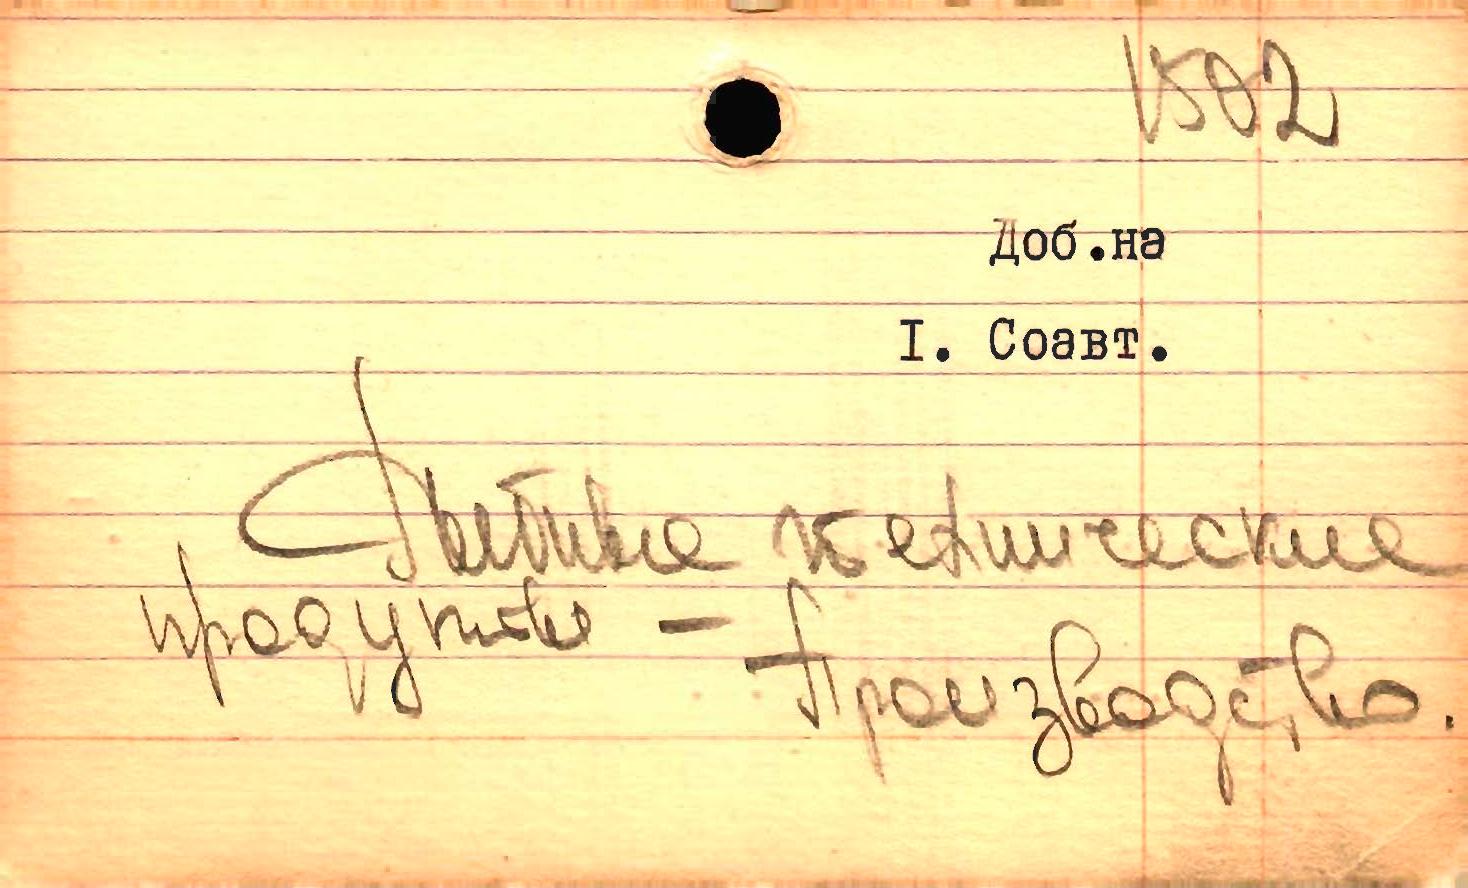 1502
Доб.на
I. Соавт.
Бытовые технические
продукты —
Производство.